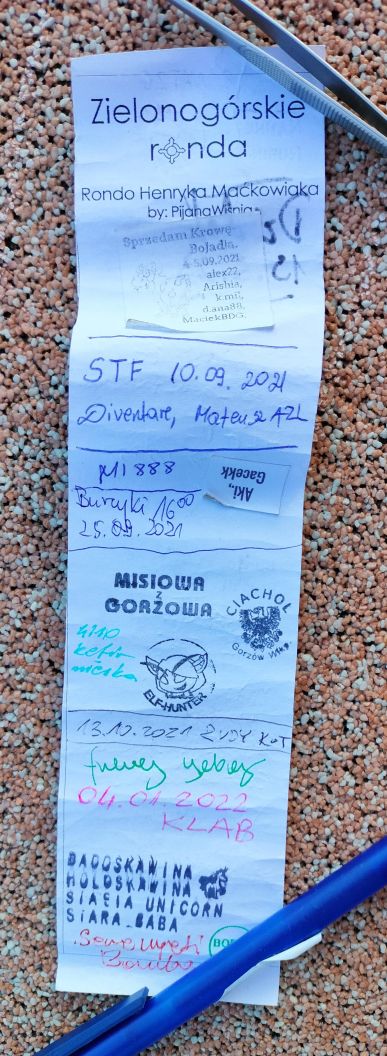 Zielonogórskie
ronda
Rondo Henryka Maćkowiaka
by: PijanaWiśnia
Sprzedam Krowę
Bojadła,
4-5.09.2021
alex22,
Arishia,
k.mii,
d.ana88,
MaciekBDG,
STF 10.09.2021
Diventare, Mateusz AZL
888
Aki,,
Gacekk
Buczyki 16:00
25.09.2021
MISIOWA
Z
GORZOWA
CIACHOL
Gorzów Wlkp.
kefir
ELF-HUNTER
13.10.2021 RUDY KOT
04.01.2022
KLAB
DADOSKAWINA
HOLOSKAWINA
SIASIA UNICORN
SIARA.BABA